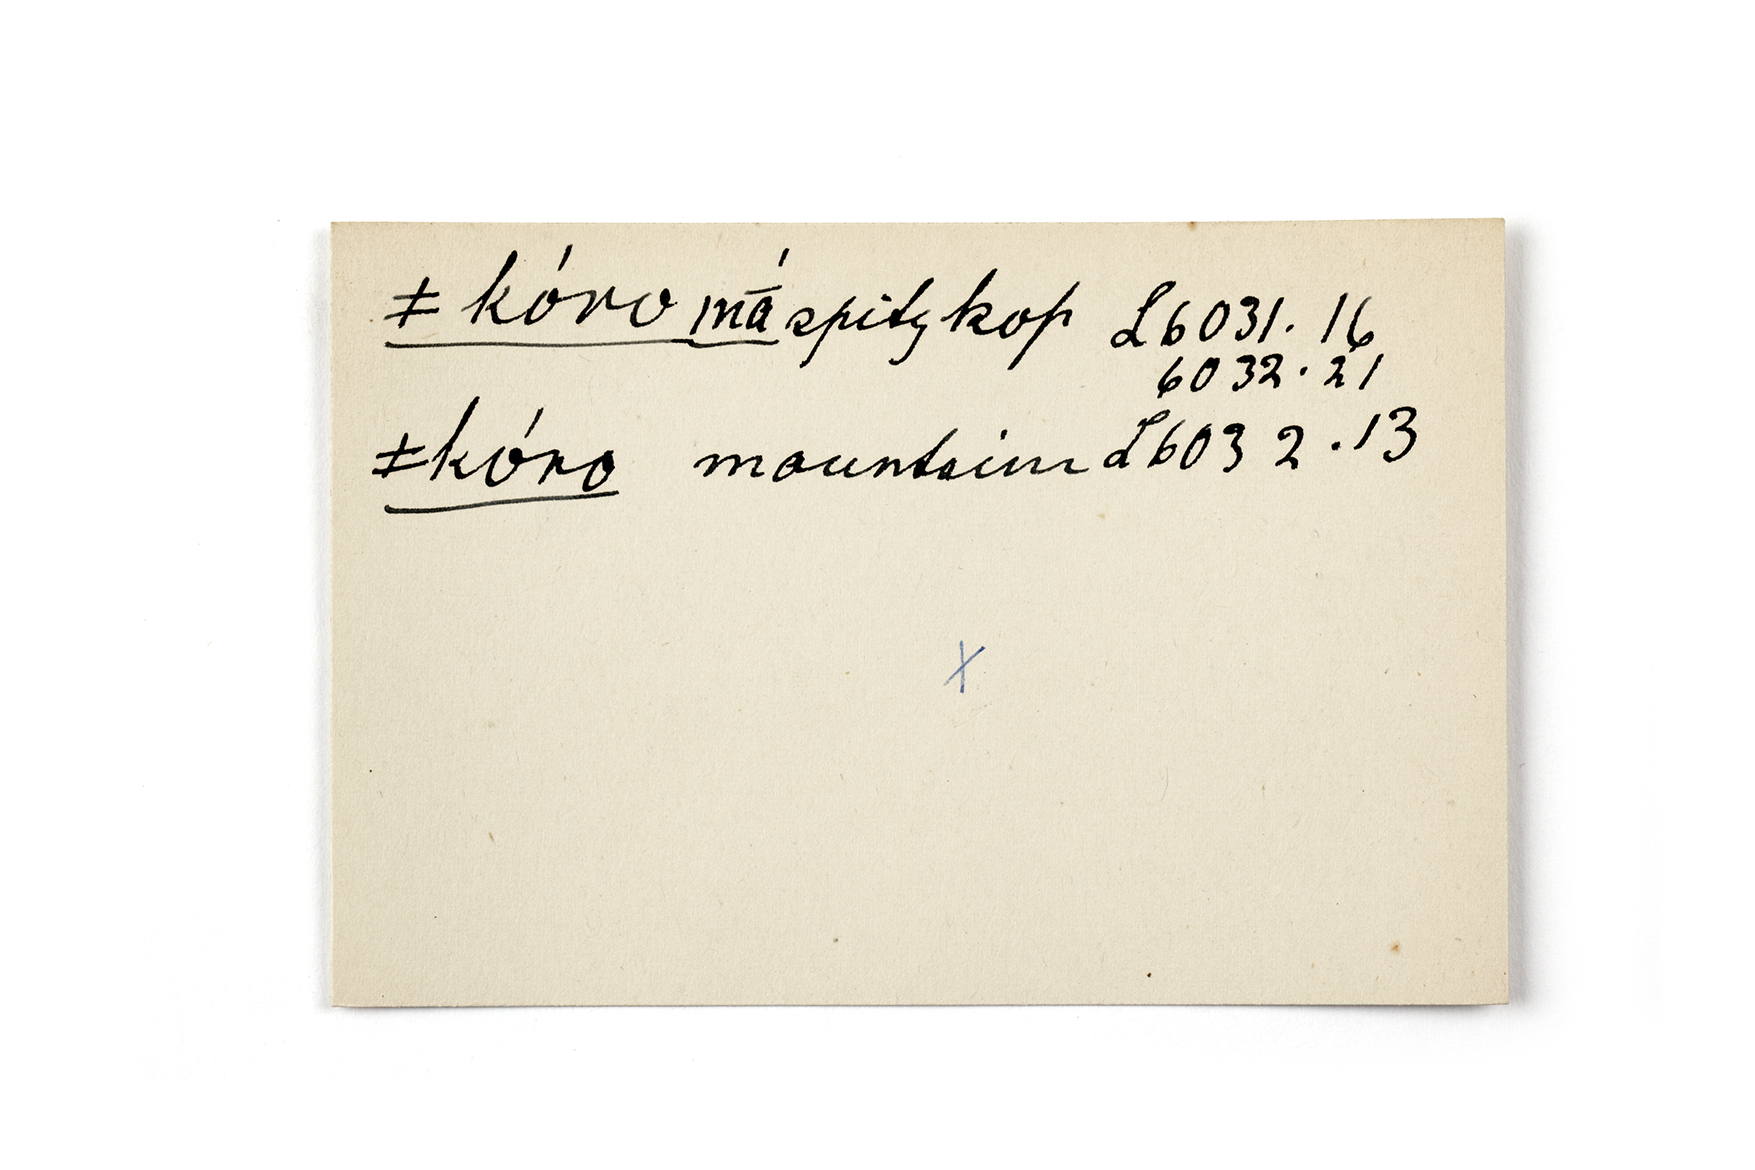 ǂkóro mā́ spitzkop L6031.16
6032.21
ǂkóro mountain L6032.13
X